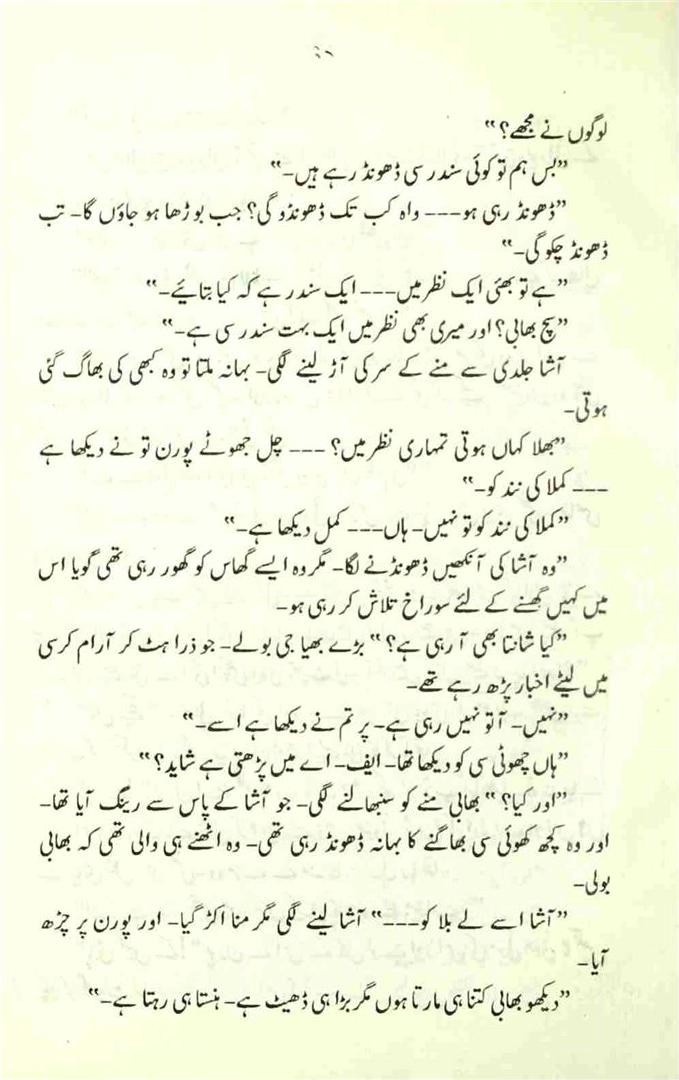 ۶۱
لوگوں نے مجھے؟“
”بس ہم تو کوئی سندر سی ڈھونڈ رہے ہیں۔“
”ڈھونڈ رہی ہو۔۔۔ واہ کب تک ڈھونڈو گی؟ جب بوڑھا ہو جاؤں گا۔ تب
ڈھونڈ چکو گی۔“
”ہے تو بھئی ایک نظر میں۔۔۔ ایک سندر ہے کہ کیا بتائیے۔“
”سچ بھابی؟ اور میری بھی نظر میں ایک بہت سندر سی ہے۔“
آشا جلدی سے منے کے سر کی آڑ لینے لگی۔ بہانہ ملتا تو وہ کبھی کی بھاگ گئی
ہوتی۔
”بھلا کہاں ہوتی تمہاری نظر میں؟ ۔۔۔ چل جھوٹے پورن تو نے دیکھا ہے
۔۔۔ کملا کی نند کو۔“
”کملا کی نند کو تو نہیں۔ ہاں۔۔۔ کمل دیکھا ہے۔“
”وہ آشا کی آنکھیں ڈھونڈنے لگا۔ مگر وہ ایسے گھاس کو گھور رہی تھی گویا اس
میں کہیں گھسنے کے لئے سوراخ تلاش کر رہی ہو۔
”کیا شانتا بھی آ رہی ہے؟“ بڑے بھیا جی بولے۔ جو ذرا ہٹ کر آرام کرسی
میں لیٹے اخبار پڑھ رہے تھے۔
”نہیں۔ آ تو نہیں رہی ہے۔ پر تم نے دیکھا ہے اسے۔“
”ہاں چھوٹی سی کو دیکھا تھا۔ ایف۔ اے میں پڑھتی ہے شاید؟“
”اور کیا؟“ بھابی منے کو سنبھالنے لگی۔ جو آشا کے پاس سے رینگ آیا تھا۔
اور وہ کچھ کھوئی سی بھاگنے کا بہانہ ڈھونڈ رہی تھی۔ وہ اٹھنے ہی والی تھی کہ بھابی
بولی۔
”آشا اسے لے بلا کو۔۔۔“ آشا لینے لگی مگر منا اکڑ گیا۔ اور پورن پر چڑھ
آیا۔
”دیکھو بھابی کتنا ہی مارتا ہوں مگر بڑا ہی ڈھیٹ ہے۔ ہنستا ہی رہتا ہے۔“